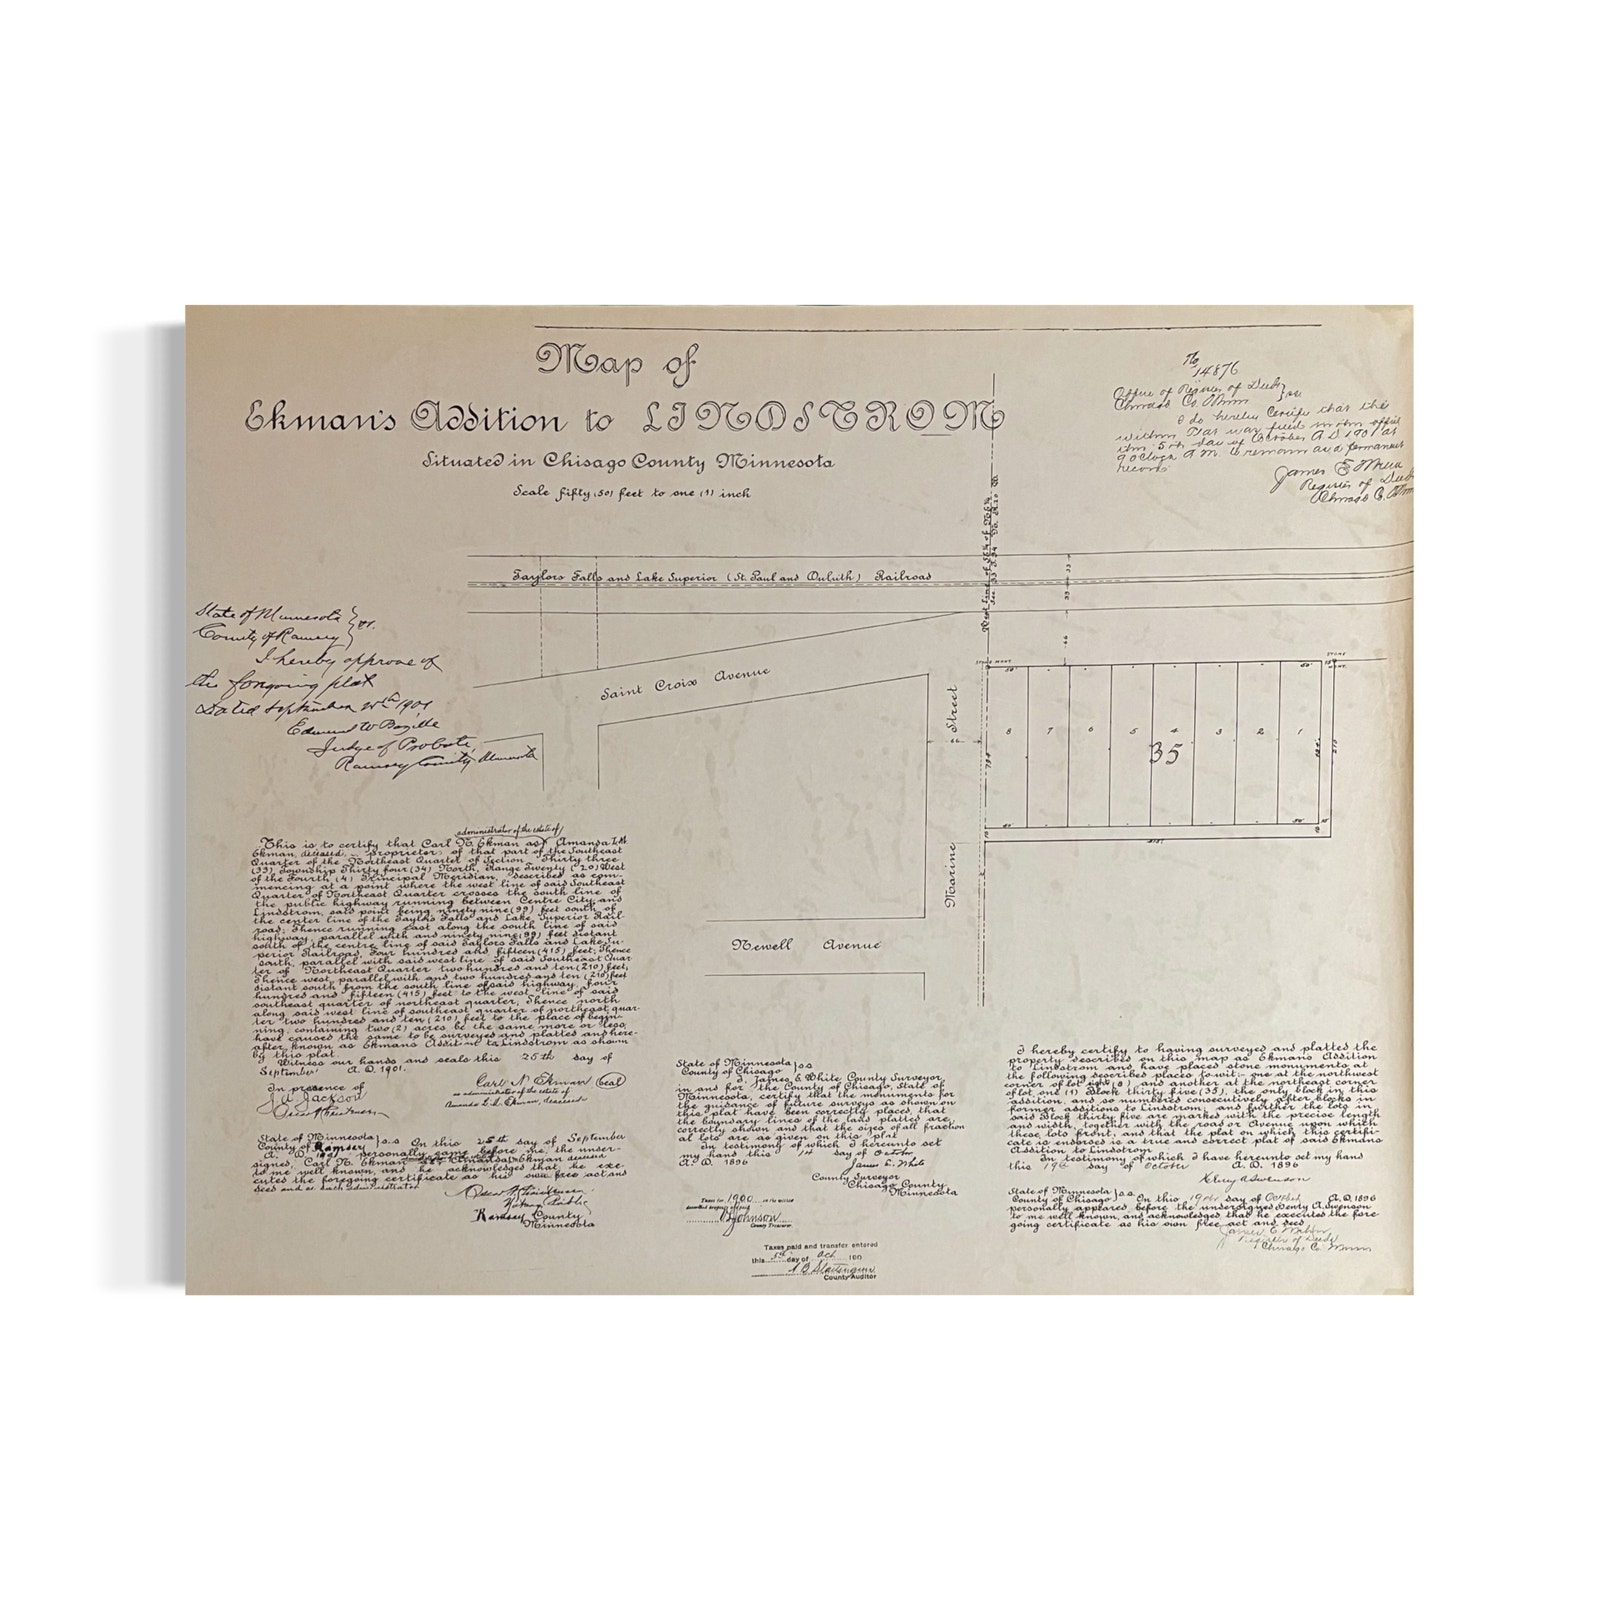 Map of
Ekman's Addition to LINDSTROM
Situated in Chisago County Minnesota
Scale fifty (50) feet to one (1) inch
No
14876
Office of Register of Deeds } ss
Chisago Co. Minn
I do hereby Certify that the
within Plat was filed in this office
this 5th day of October A D 1901 at
9 o'clock A.M.
record
James E
Register of Deeds
Chisago Co. Minn
Taylors Falls and Lake Superior (St. Paul and Duluth) Railroad
State of Minnesota } ss.
County of Ramsey
I hereby approve of
the foregoing plat
Dated September 25th 1901
Edmund W Bazille
Judge of Probate,
Ramsey County, Minnesota
Saint Croix Avenue
Marine Street
66
STONE MONT.
STONE MONT.
8 7 6 5 4 3 2 1
35
Newell Avenue
administrator of the estate of
This is to certify that Carl N. Ekman as Amanda
Ekman, deceased, proprietor of that part of the Southeast
Quarter of the Northeast Quarter of Section Thirty three
(33), Township Thirty four (34) North, Range Twenty (20) West
of the Fourth (4) Principal Meridian, described as com-
mencing at a point where the west line of said Southeast
Quarter of Northeast Quarter crosses the south line of
the public highway running between Centre City and
Lindstrom, said point being ninety nine (99) feet south of
the center line of the Taylors Falls and Lake Superior Rail-
road; Thence running east along the south line of said
highway, parallel with and ninety nine (99) feet distant
south of the centre line of said Taylors Falls and Lake Su-
perior Railroad, Four hundred and fifteen (415) feet; Thence
south, parallel with said west line of said Southeast Quar-
ter of Northeast Quarter two hundred and ten (210) feet;
Thence west, parallel with and two hundred and ten (210) feet
distant south from the south line of said highway, Four
hundred and fifteen (415) feet to the west line of said
southeast quarter of northeast quarter; Thence north
along said west line of southeast quarter of northeast quar-
ter two hundred and ten (210) feet to the place of begin-
ning, containing two (2) acres be the same more or less,
have caused the same to be surveyed and platted and here-
after known as Ekmans Addition to Lindstrom as shown
by this plat.
Witness our hands and seals this 25th day of
September A. D. 1901.
In presence of
J. A. Jackson
Carl N. Ekman (Seal)
as administrator of the estate of
Amanda Ekman, deceased
State of Minnesota } s.s
County of Ramsey
On this 25th day of September
A. D. 1901 personally came before me, the under-
signed, Carl N. Ekman
to me well known, and he acknowledged that he exe-
cutes the foregoing certificate as his own free act and
deed and as such administrator
Notary Public
Ramsey County
Minnesota
State of Minnesota } s.s
County of Chisago
I, James E. White County Surveyor
in and for the County of Chisago, State of
Minnesota, certify that the monuments for
the guidance of future surveys as shown on
this plat have been correctly placed, that
the boundary lines of the land platted are
correctly shown and that the sizes of all fraction
al lots are as given on this plat
In testimony of which I hereunto set
my hand this 14 day of October
A. D. 1896
James E. White
County Surveyor
Chisago County
Minnesota
Taxes for 1900
Johnson
County Treasurer
Taxes paid and transfer entered
this 5th day of Oct 190
County Auditor
I hereby certify to having surveyed and platted the
property described on this map as Ekmans Addition
to Lindstrom and have placed stone monuments at
the following described places to wit:- one at the northwest
corner of lot eight (8) and another at the northeast corner
of lot one (1) Block thirty five (35), the only block in this
addition, and so numbered consecutively after blocks in
former additions to Lindstrom, and further the lots in
said Block thirty five are marked with the precise length
and width, together with the road or Avenue upon which
these lots front; and that the plat on which this certifi-
cate is endorsed is a true and correct plat of said Ekmans
Addition to Lindstrom
In testimony of which I have hereunto set my hand
this 19th day of October A. D. 1896
Henry A. Swenson
State of Minnesota } s.s
County of Chisago
On this 19th day of October A. D. 1896
personally appeared before the undersigned Henry A. Swenson
to me well known, and acknowledged that he executed the fore
going certificate as his own free act and deed
James E
Register of Deeds
Chisago Co. Minn